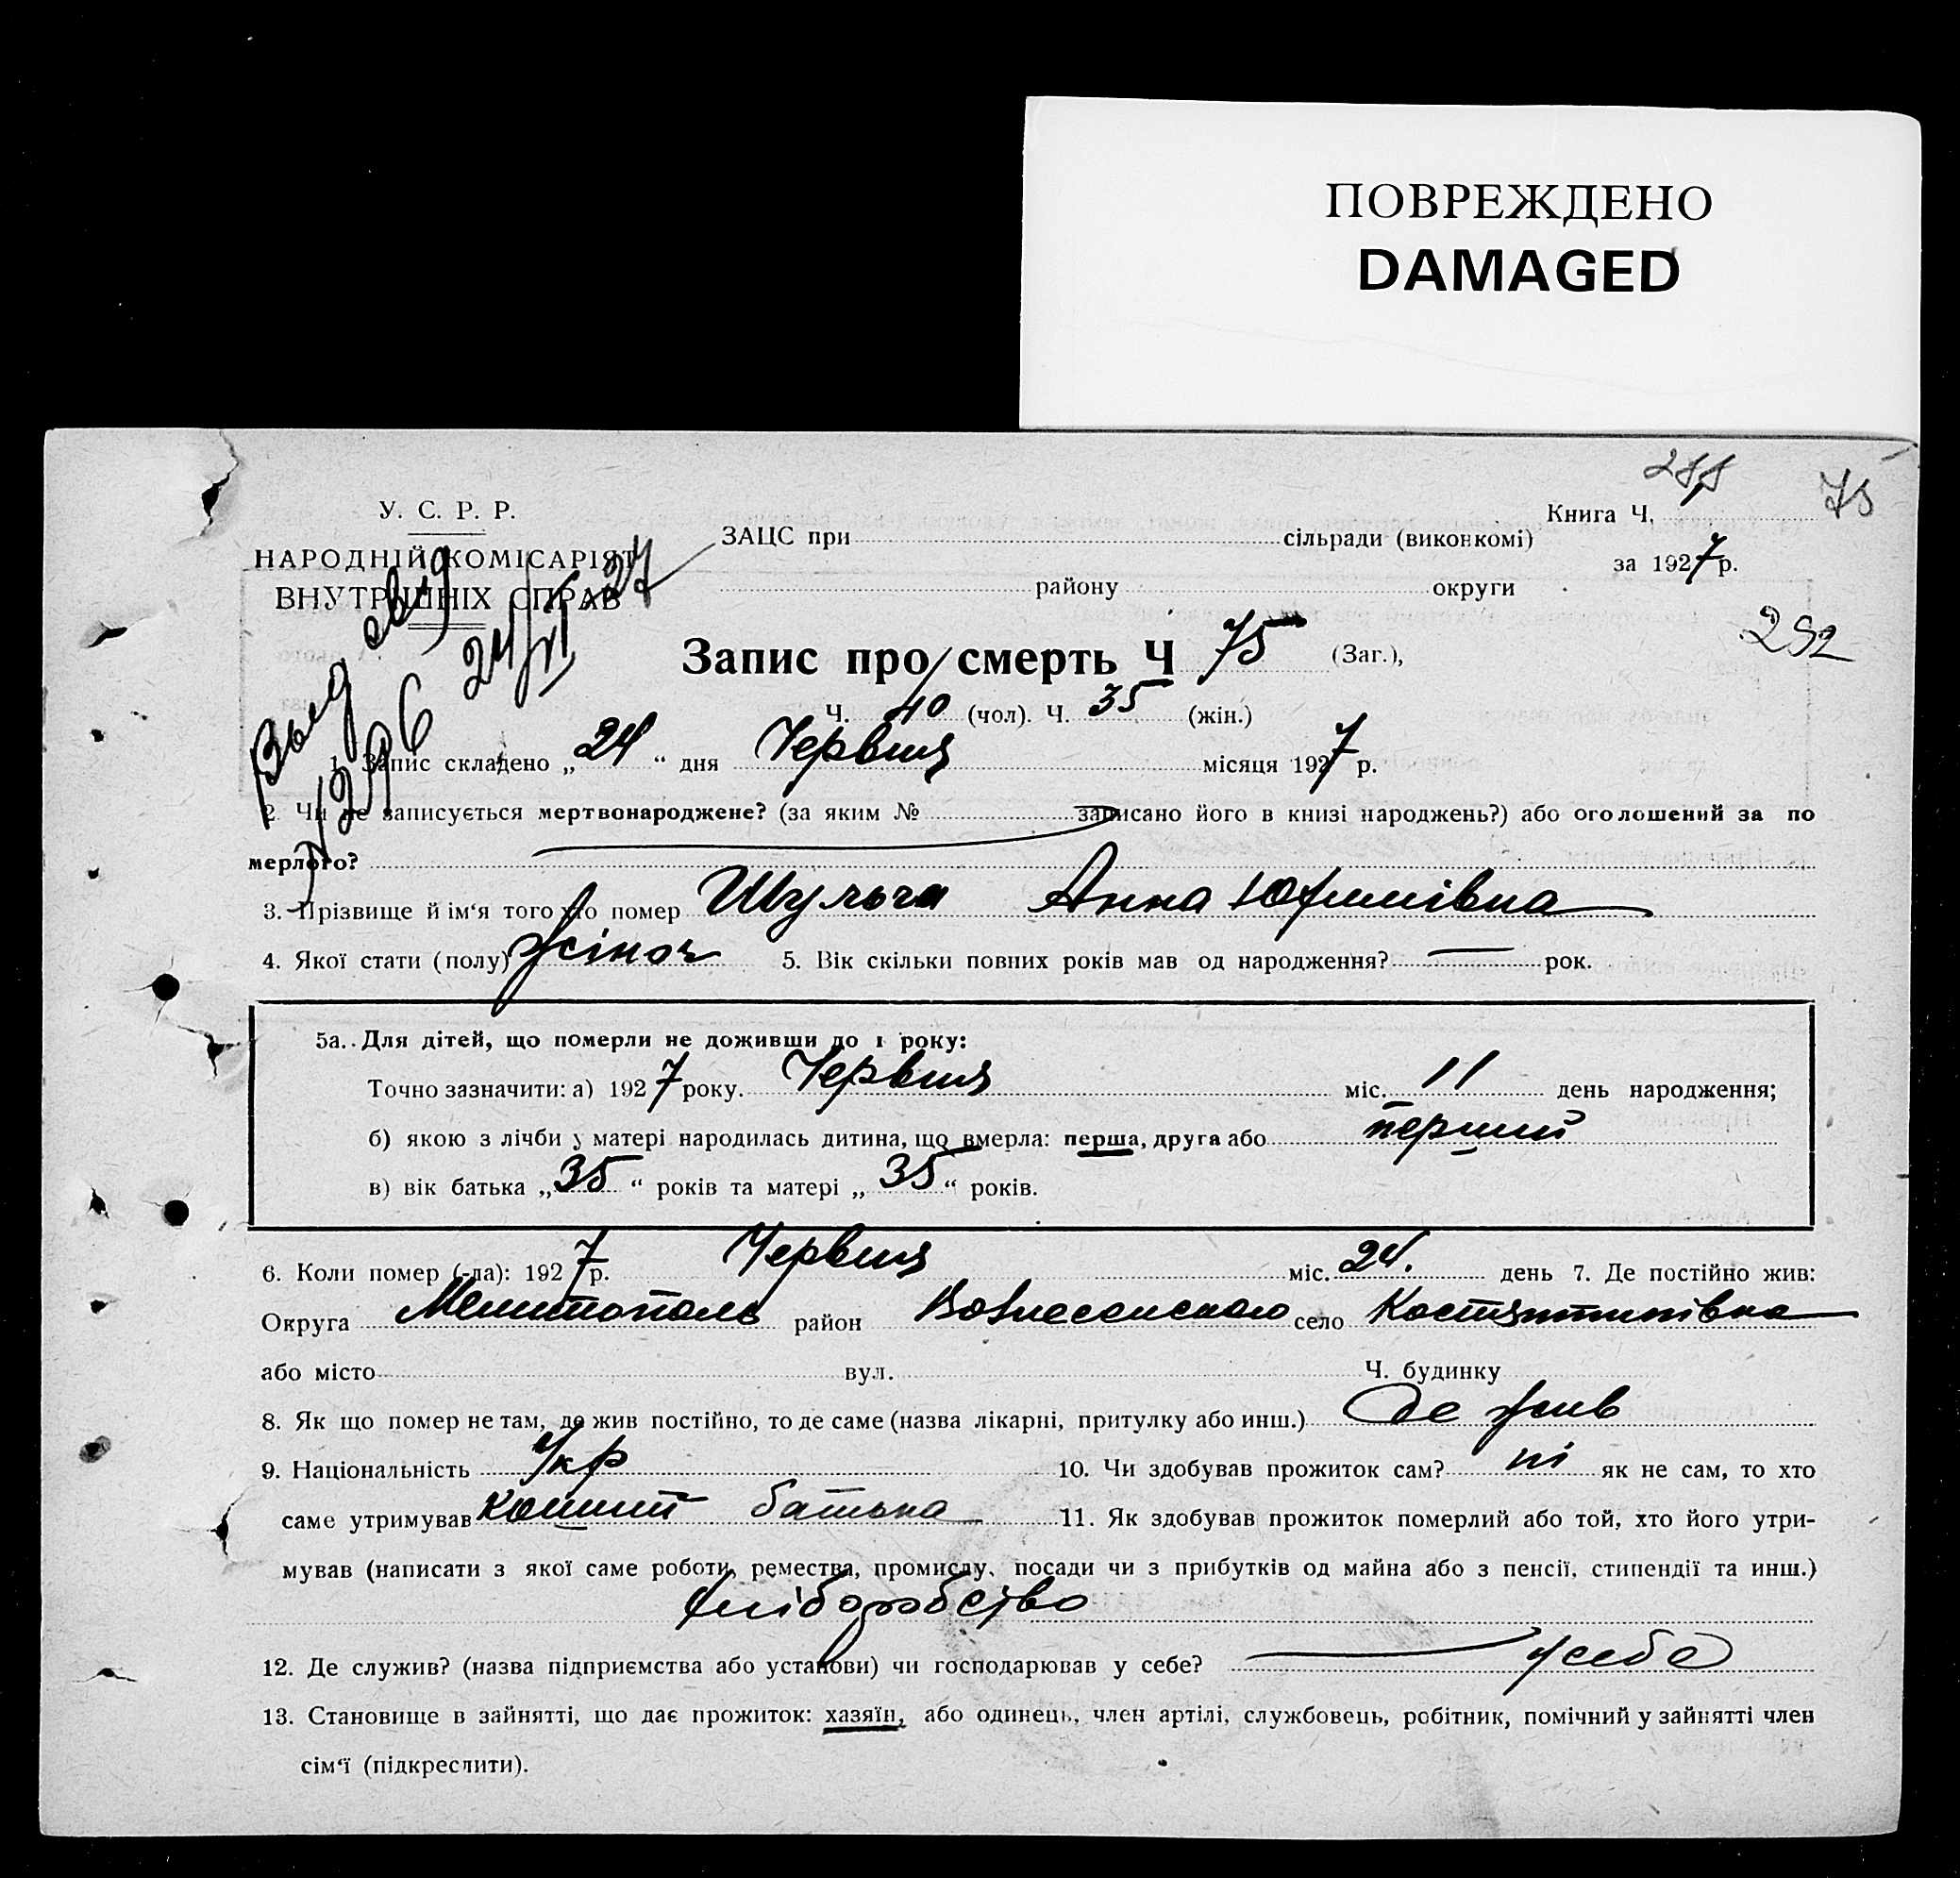 ПОВРЕЖДЕНО
DAMAGED
75
У. С. Р. Р.
НАРОДНІЙ КОМІСАРІЯТ
ВНУТРІШНІХ СПРАВ
Книга Ч.
ЗАЦС при сільради (виконкомі)
за 1927 р.
району округи
292
Выд свид
№ 296 24/VI-27
Запис про смерть Ч 75 (Заг.),
Ч. 40 (чол). Ч. 35 (жін.)
1. Запис складено „24“ дня Червня місяця 1927 р.
2. Чи не записується мертвонароджене? (за яким № записано його в книзі народжень?) або оголошений за по
мерлого?
3. Прізвище й ім'я того хто помер Шульга Анна Юхимівна
4. Якої стати (полу) жіноч 5. Вік скільки повних років мав од народження? — рок.
5а. Для дітей, що померли не доживши до 1 року:
Точно зазначити: а) 1927 року. Червня міс. 11 день народження;
б) якою з лічби у матері народилась дитина, що вмерла: перша, друга або перший
в) вік батька „35“ років та матері „35“ років.
6. Коли помер (-ла): 1927 р. Червня міс. 24. день 7. Де постійно жив:
Округа Мелитополь район Вознесенського село Костянтинівка
або місто вул. Ч. будинку
8. Як що помер не там, де жив постійно, то де саме (назва лікарні, притулку або инш.) Де жив
9. Національність Укр 10. Чи здобував прожиток сам? ні як не сам, то хто
саме утримував кошт батька 11. Як здобував прожиток померлий або той, хто його утри-
мував (написати з якої саме роботи, ремества, промислу, посади чи з прибутків од майна або з пенсії, стипендії та инш.)
хліборобство
12. Де служив? (назва підприємства або установи) чи господарював у себе? — у себе
13. Становище в зайнятті, що дає прожиток: хазяїн, або одинець, член артілі, службовець, робітник, помічний у зайнятті член
сім'ї (підкреслити).